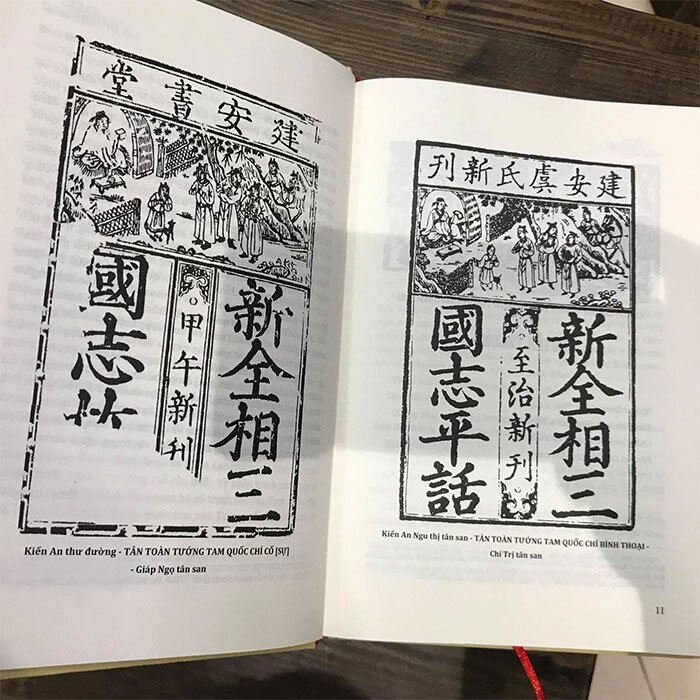 建安書堂
新全相三
甲午新刊
國志
Kiến An thư đường - TÂN TOÀN TƯỚNG TAM QUỐC CHÍ CỐ [SỰ]
- Giáp Ngọ tân san
建安虞氏新刊
新全相三
至治新刊
國志平話
Kiến An Ngu thị tân san - TÂN TOÀN TƯỚNG TAM QUỐC CHÍ BÌNH THOẠI -
Chí Trị tân san
11